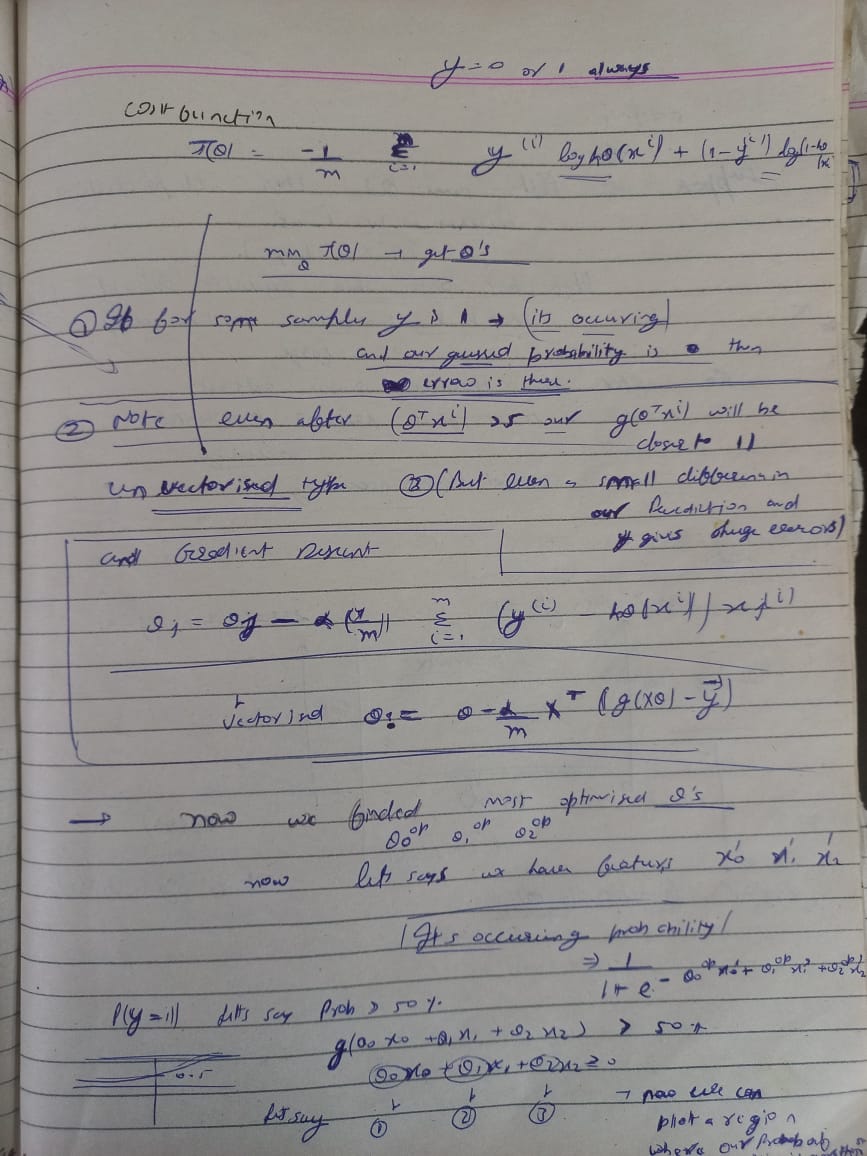 y = 0 or 1 always
cost function
J(θ) = -1/m Σ i=1 y^(i) log hθ(x^i) + (1-y^(i)) log(1-hθ(x
min θ J(θ) → get θ's
① If for some samples y is 1 → (its occuring)
and our guessed probability is 0 then
error is there.
② Note even after (θ^T x^i) >5 our g(θ^T x^i) will be
closer to 1
un vectorised type (But even a small difference in
our Prediction and
y gives huge errors)
and Gradient Descent
θj = θj - α (1/m) Σ i=1 m (y^(i) - hθ(x^i)) xj^(i)
Vectorised θ := θ - α/m X^T (g(Xθ) - y⃗)
→ now we finded most optimised θ's
θ0^op θ1^op θ2^op
now lets says we have features x0' x1' x2'
(It's occuring probability)
⇒ 1/1+e - θ0^op x0' + θ1^op x1' + θ2^op x2'
P(y=1) lets say Prob > 50%.
g(θ0 x0 + θ1 x1 + θ2 x2) > 50%
0.5 θ0 x0 + θ1 x1 + θ2 x2 ≥ 0
let say ① ② ③ → now we can
plot a region
where our Probab